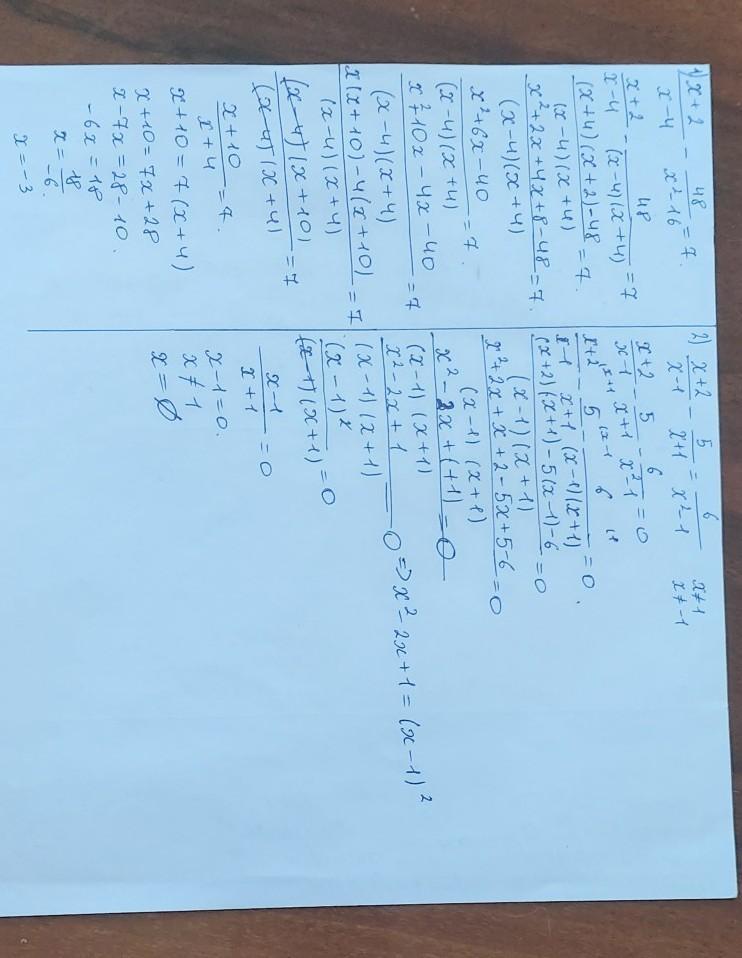 1) (x+2)/(x-4) - 48/(x²-16) = 7.
(x+2)/(x-4) - 48/((x-4)(x+4)) = 7
((x+4)(x+2)-48)/((x-4)(x+4)) = 7.
(x²+2x+4x+8-48)/((x-4)(x+4)) = 7.
(x²+6x-40)/((x-4)(x+4)) = 7.
(x²+10x-4x-40)/((x-4)(x+4)) = 7
(x(x+10)-4(x+10))/((x-4)(x+4)) = 7
((x-4)(x+10))/((x-4)(x+4)) = 7
(x+10)/(x+4) = 7.
x+10=7(x+4)
x+10=7x+28
x-7x=28-10.
-6x=18
x=18/-6.
x=-3
2) (x+2)/(x-1) - 5/(x+1) = 6/(x²-1) x≠1 x≠-1
(x+2)/(x-1) - 5/(x+1) - 6/(x²-1) = 0
(x+2)/(x-1) - 5/(x+1) - 6/((x-1)(x+1)) = 0.
((x+2)(x+1)-5(x-1)-6)/((x-1)(x+1)) = 0
(x²+2x+x+2-5x+5-6)/((x-1)(x+1)) = 0
(x²-2x+(+1))/((x-1)(x+1)) = 0
(x²-2x+1)/((x-1)(x+1)) = 0 => x²-2x+1=(x-1)²
(x-1)²/((x-1)(x+1)) = 0
(x-1)/(x+1) = 0
x-1=0.
x≠1
x=∅